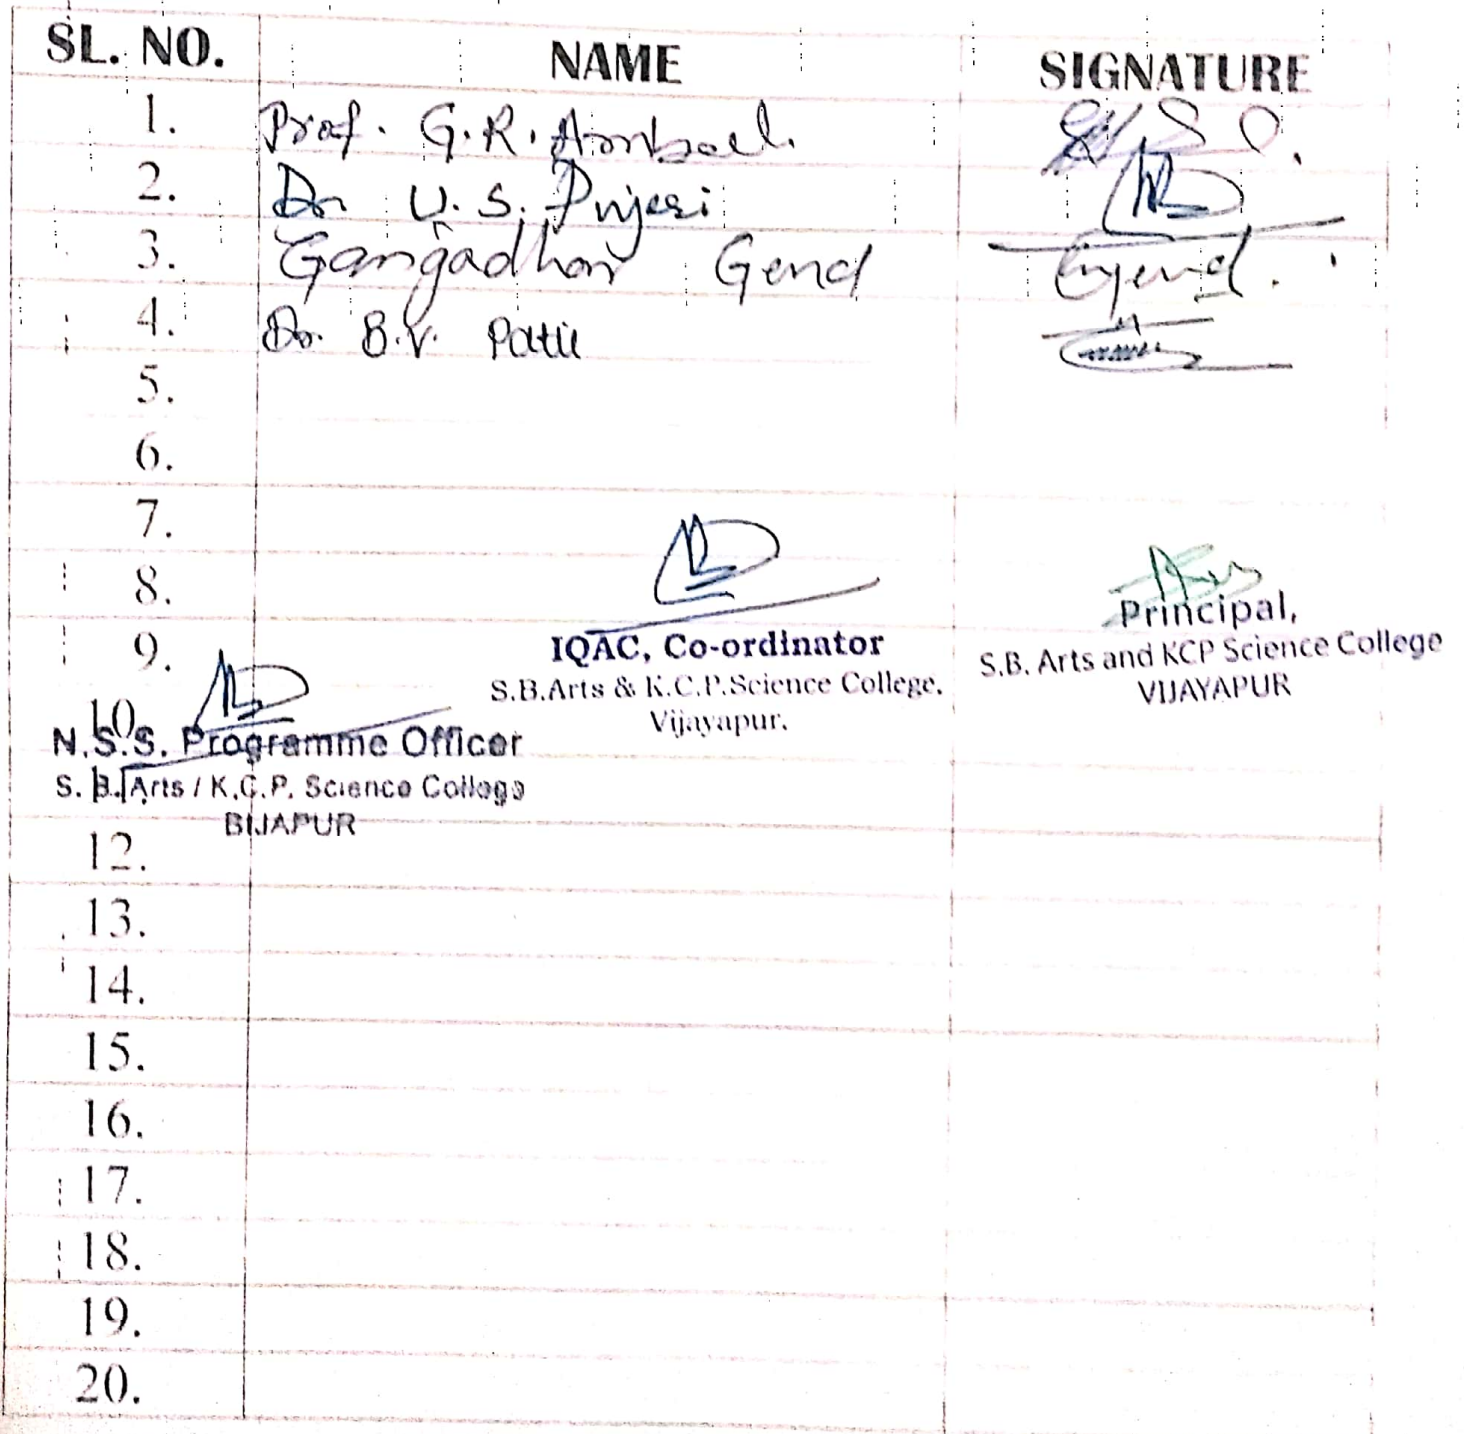 SL. NO. NAME SIGNATURE
1. Prof. G.R. Ambali.
2. Dr. U.S. Pujeri
3. Gangadhar Gend Gend.
4. Dr. B.V. Patil
5.
6.
7.
8.
9.
IQAC, Co-ordinator
S.B.Arts & K.C.P.Science College.
Vijayapur.
Principal,
S.B. Arts and KCP Science College
VIJAYAPUR
10.
N.S.S. Programme Officer
S. B. Arts / K.C.P. Science College
BIJAPUR
12.
13.
14.
15.
16.
17.
18.
19.
20.